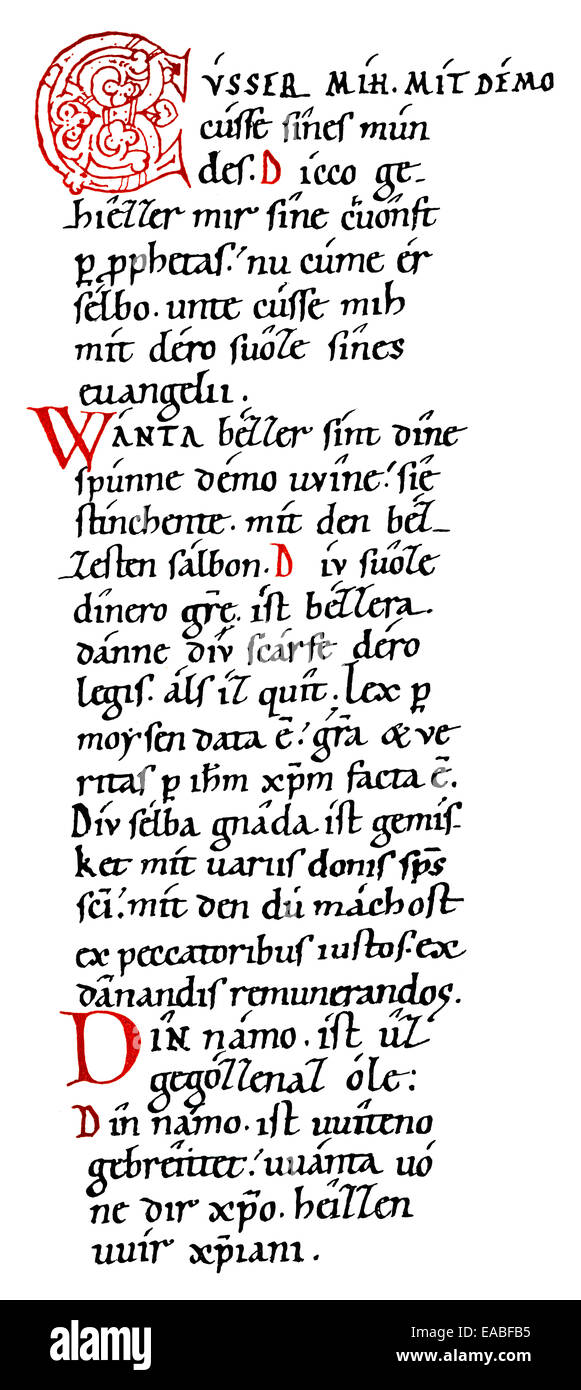 CVSSER MIH. MIT DÉMO
cússe sînes mún
des. Dícco ge-
hiêller mir sîne cuônft
p̱ pphetas! nu cúme ér
sélbo. unte cússe mih
mít déro suôle sînes
euangelii.
WÁNTA bézzer sínt dîne
spúnne démo uvîne! siê
stínchente. mít den béz-
zesten sálbon. Dív suôle
dînero grę̄. íst bézzera.
dánne dív scárfe déro
legis. áls íz quît. Lex p̱
moẏsen data ē! gr̄a & ve
ritas p̱ ihm̄ xp̄m facta ē.
Dív sélba gnâda. íst gemís-
ket mít uariis donis sp̄s
sc̄i! mít den dû máchost
ex peccatoribus iustos. ex
dānandis remunerandos.
DÎN námo. íst ûz
gegózzenaz óle:
Dîn námo. ist uuîteno
gebreîttet! uuánta uó
ne dír xp̄o. heîzzen
uuír xp̄iani.
alamy
a
a
alamy
Image ID: EABFB5
www.alamy.com